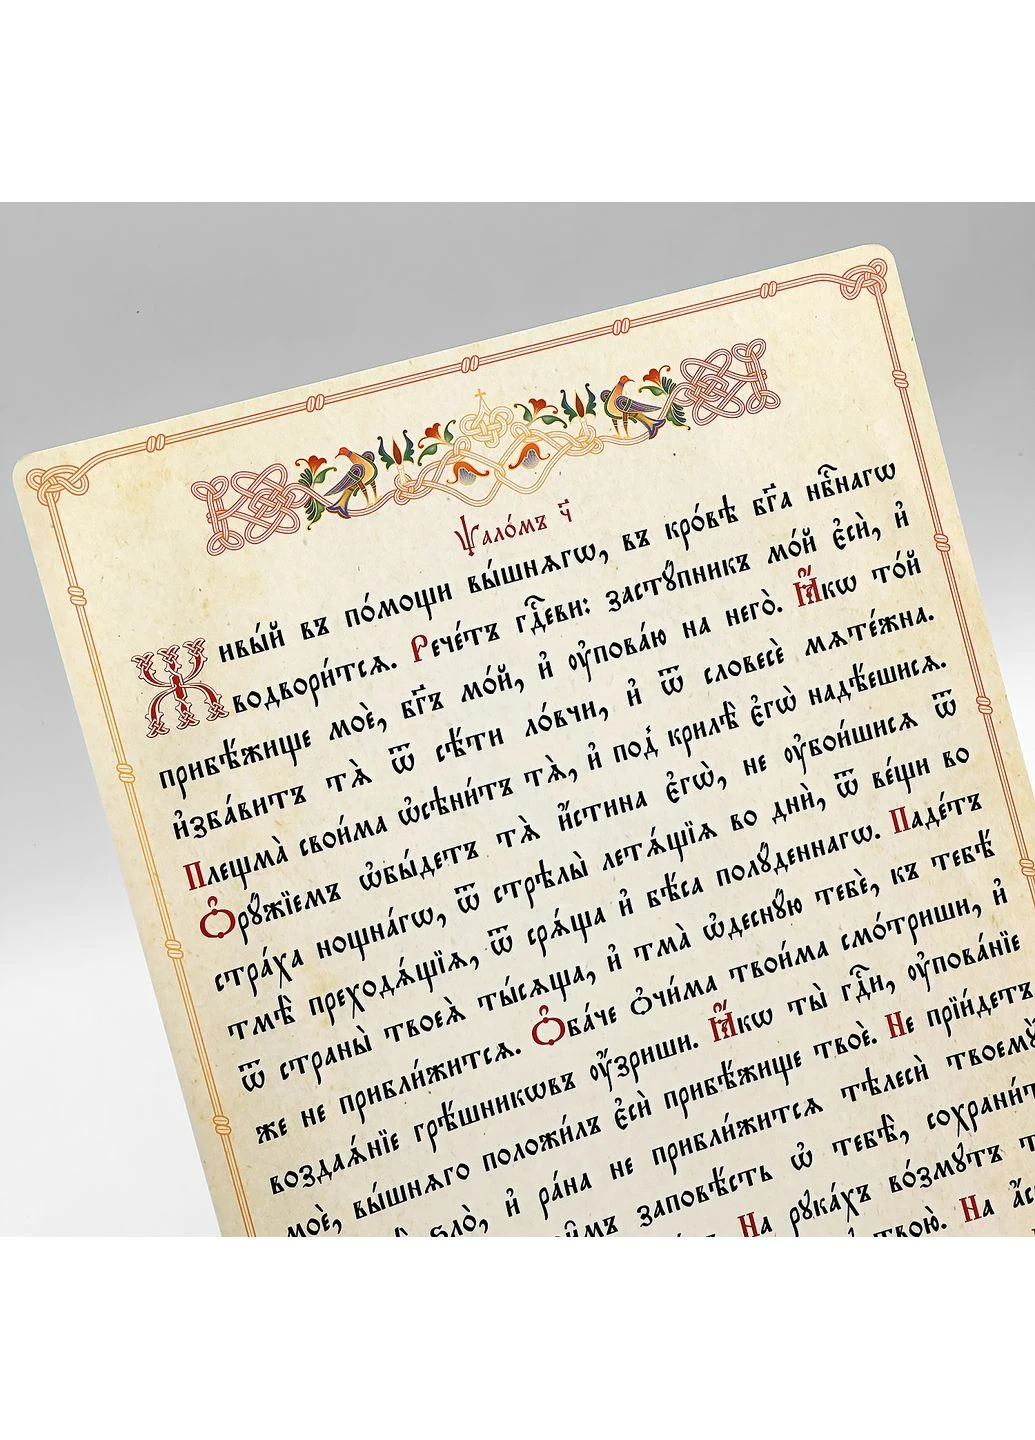 Ѱало́мъ ч҃
Живы́й въ по́мощи вы́шнѧгѡ, въ кро́вѣ бг҃а нбⷭ҇нагѡ
водвори́тсѧ. Рече́тъ гдⷭ҇еви: застꙋ́пникъ мо́й є҆сѝ, и҆
прибѣ́жище моѐ, бг҃ъ мо́й, и҆ ᲂу҆пова́ю на него̀. Ꙗ҆́кѡ то́й
и҆зба́витъ тѧ̀ ѿ сѣ́ти ло́вчи, и҆ ѿ словесѐ мѧте́жна.
Плещма̀ свои́ма ѡ҆сѣни́тъ тѧ̀, и҆ под̾ крилѣ̀ є҆гѡ̀ надѣ́ешисѧ.
Ѻ҆рꙋ́жїемъ ѡ҆бы́детъ тѧ̀ и҆́стина є҆гѡ̀, не ᲂу҆бои́шисѧ ѿ
стра́ха нощна́гѡ, ѿ стрѣлы̀ летѧ́щїѧ во дни̑, ѿ ве́щи во
тмѣ̀ преходѧ́щїѧ, ѿ срѧ́ща и҆ бѣ́са полꙋ́деннагѡ. Паде́тъ
ѿ страны̀ твоеѧ̀ ты́сѧща, и҆ тма̀ ѡ҆деснꙋ́ю тебѐ, къ тебѣ́
же не прибли́житсѧ. Ѻ҆ба́че ѻ҆чи́ма твои́ма смо́триши, и҆
воздаѧ́нїе грѣ́шникѡвъ ᲂу҆́зриши. Ꙗ҆́кѡ ты̀ гдⷭ҇и, ᲂу҆пова́нїе
моѐ, вы́шнѧго положи́лъ є҆сѝ прибѣ́жище твоѐ. Не прїи́детъ
ѕло̀, и҆ ра́на не прибли́житсѧ тѣлесѝ твоемꙋ̀
заповѣ́сть ѡ҆ тебѣ̀, сохрани́т
На рꙋка́хъ во́змꙋтъ т
твою̀. На а҆́с